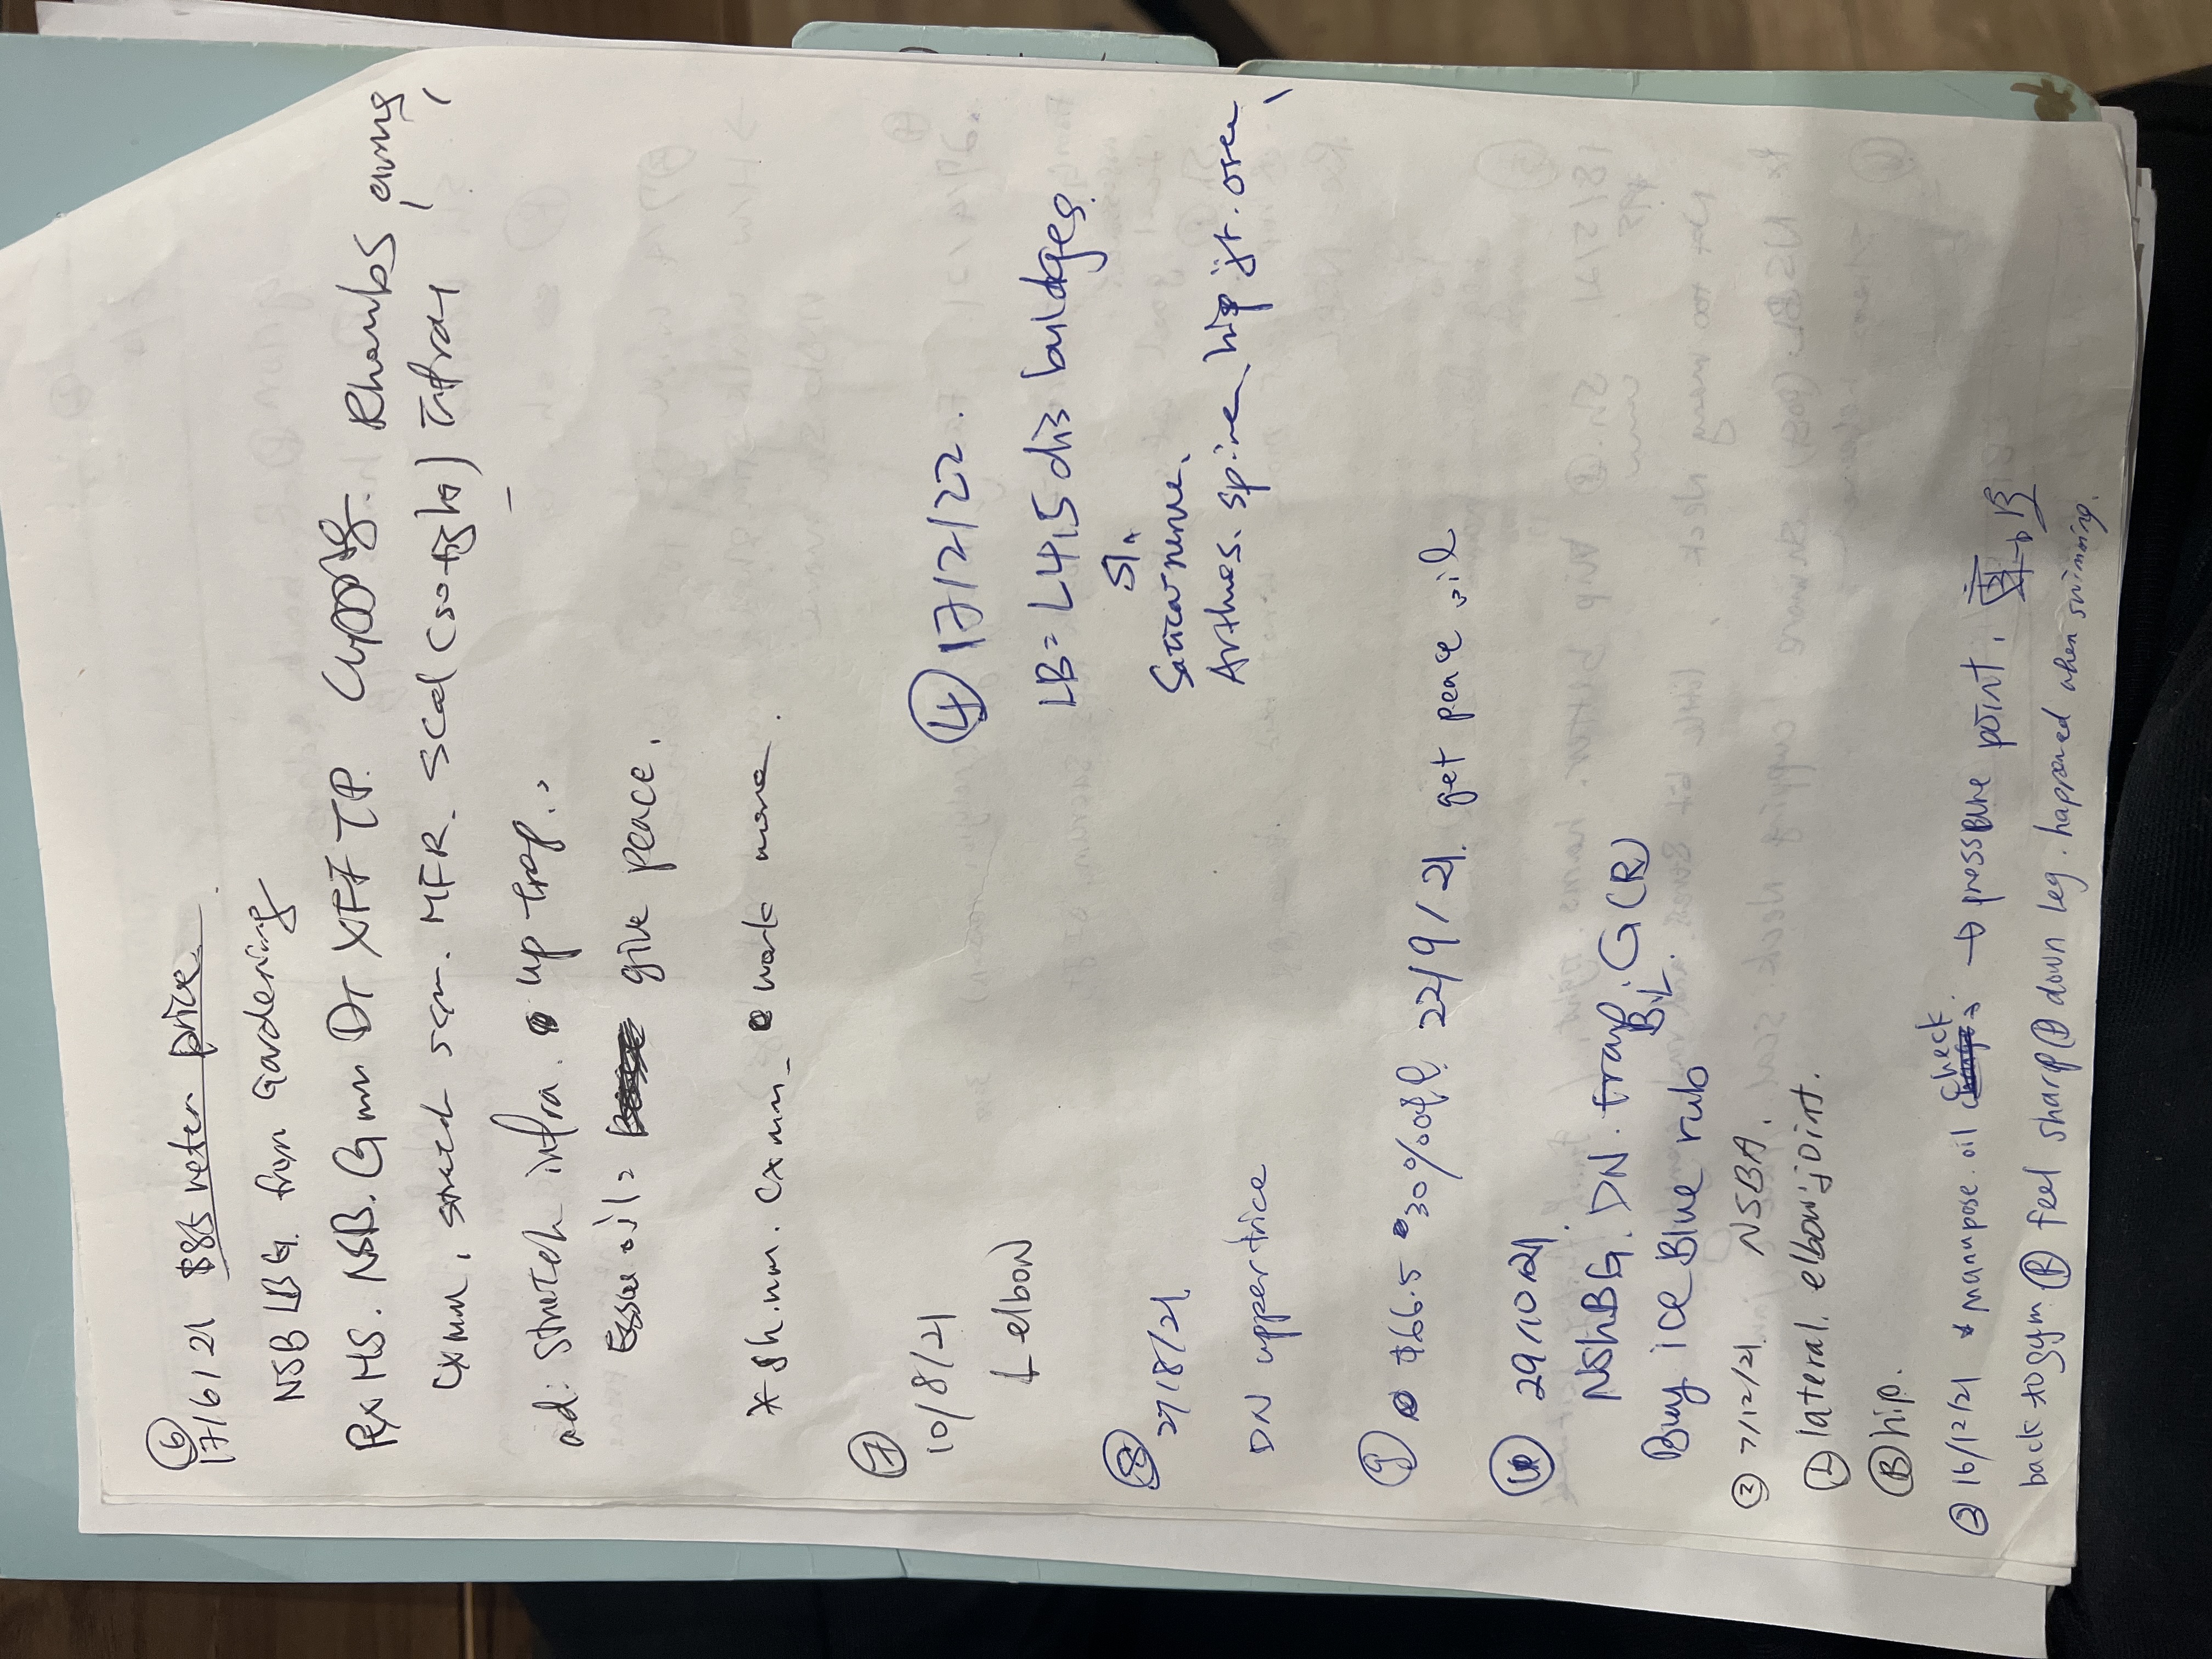 ⑥
17/6/21 $85 neter price.
NSB LBG. from Gardening
Rx HS. NSB. G mm DT XFF TP. Cupping Rhombs
Cxmm, strech scm. MFR. Scal (so tight) infra
ad: stretch infra. up trap.
Essce oil = give peace.
* sh. mm. Cxmm_ work more.
⑦
10/8/21
L elbow
⑧
27/8/21
DN upper trice
⑨ $66.5 30% off. 22/9/21. get peace oil
⑩ 29/10/21.
NShBG. DN. trap. G(R)
BL.
Buy ice Blue rub
② 7/12/21. NSBA.
Ⓛ lateral. elbow joint.
Ⓡ hip.
③ 16/12/21 * manupose. oil check. → pressure point.
back to gym. Ⓡ feel sharp Ⓟ down leg. happened when swimming.
④ 17/2/22.
LB = L4L5 dis buldges.
S1.
Saticar nerve.
Arthes. spine, hip jt. ore